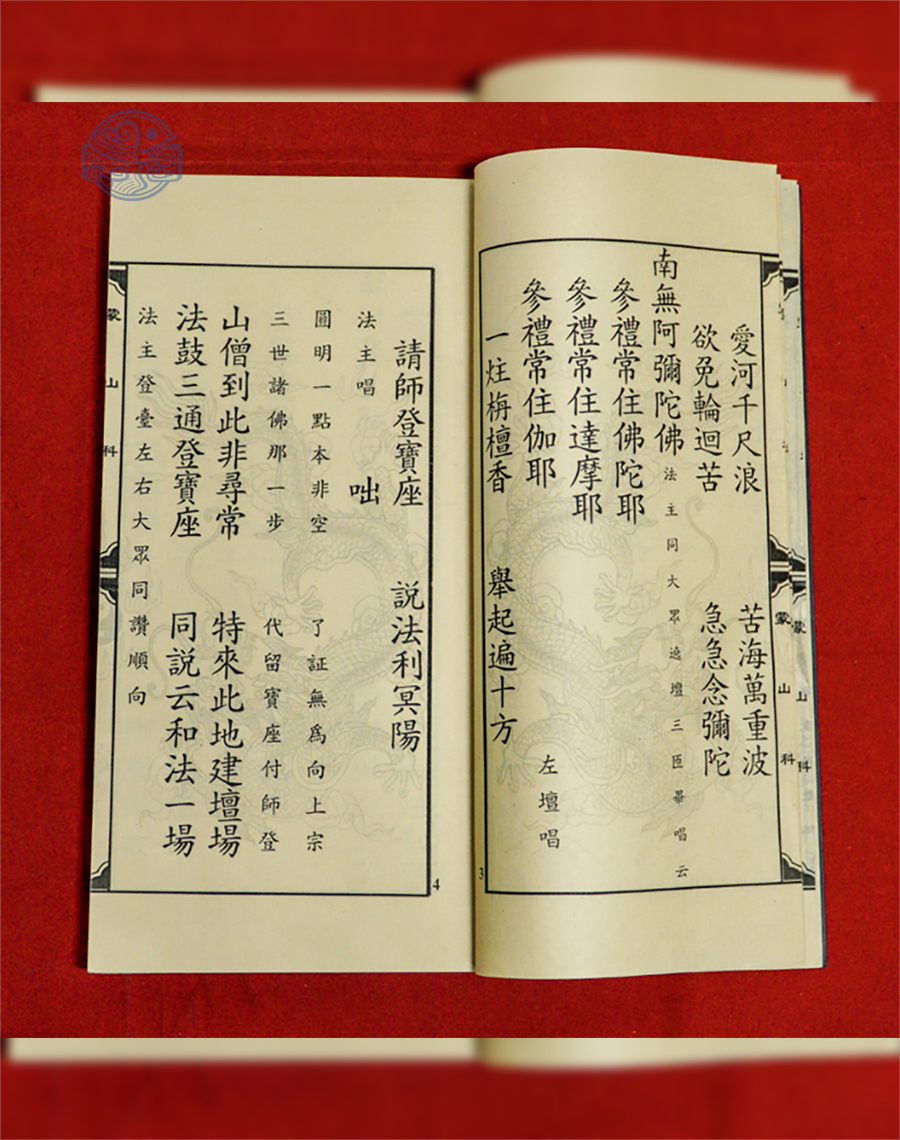 愛河千尺浪 苦海萬重波
欲免輪迴苦 急急念彌陀
南無阿彌陀佛 法主同大眾遶壇三匝畢唱云
參禮常住佛陀耶
參禮常住達摩耶
參禮常住伽耶 左壇唱
一炷栴檀香 舉起遍十方
3
蒙山科
請師登寶座 説法利冥陽
法主唱 咄
圓明一點本非空 了証無為向上宗
三世諸佛那一步 代留寶座付師登
山僧到此非尋常 特來此地建壇場
法鼓三通登寶座 同説云和法一場
法主登臺左右大眾同讚順向
4
蒙山科